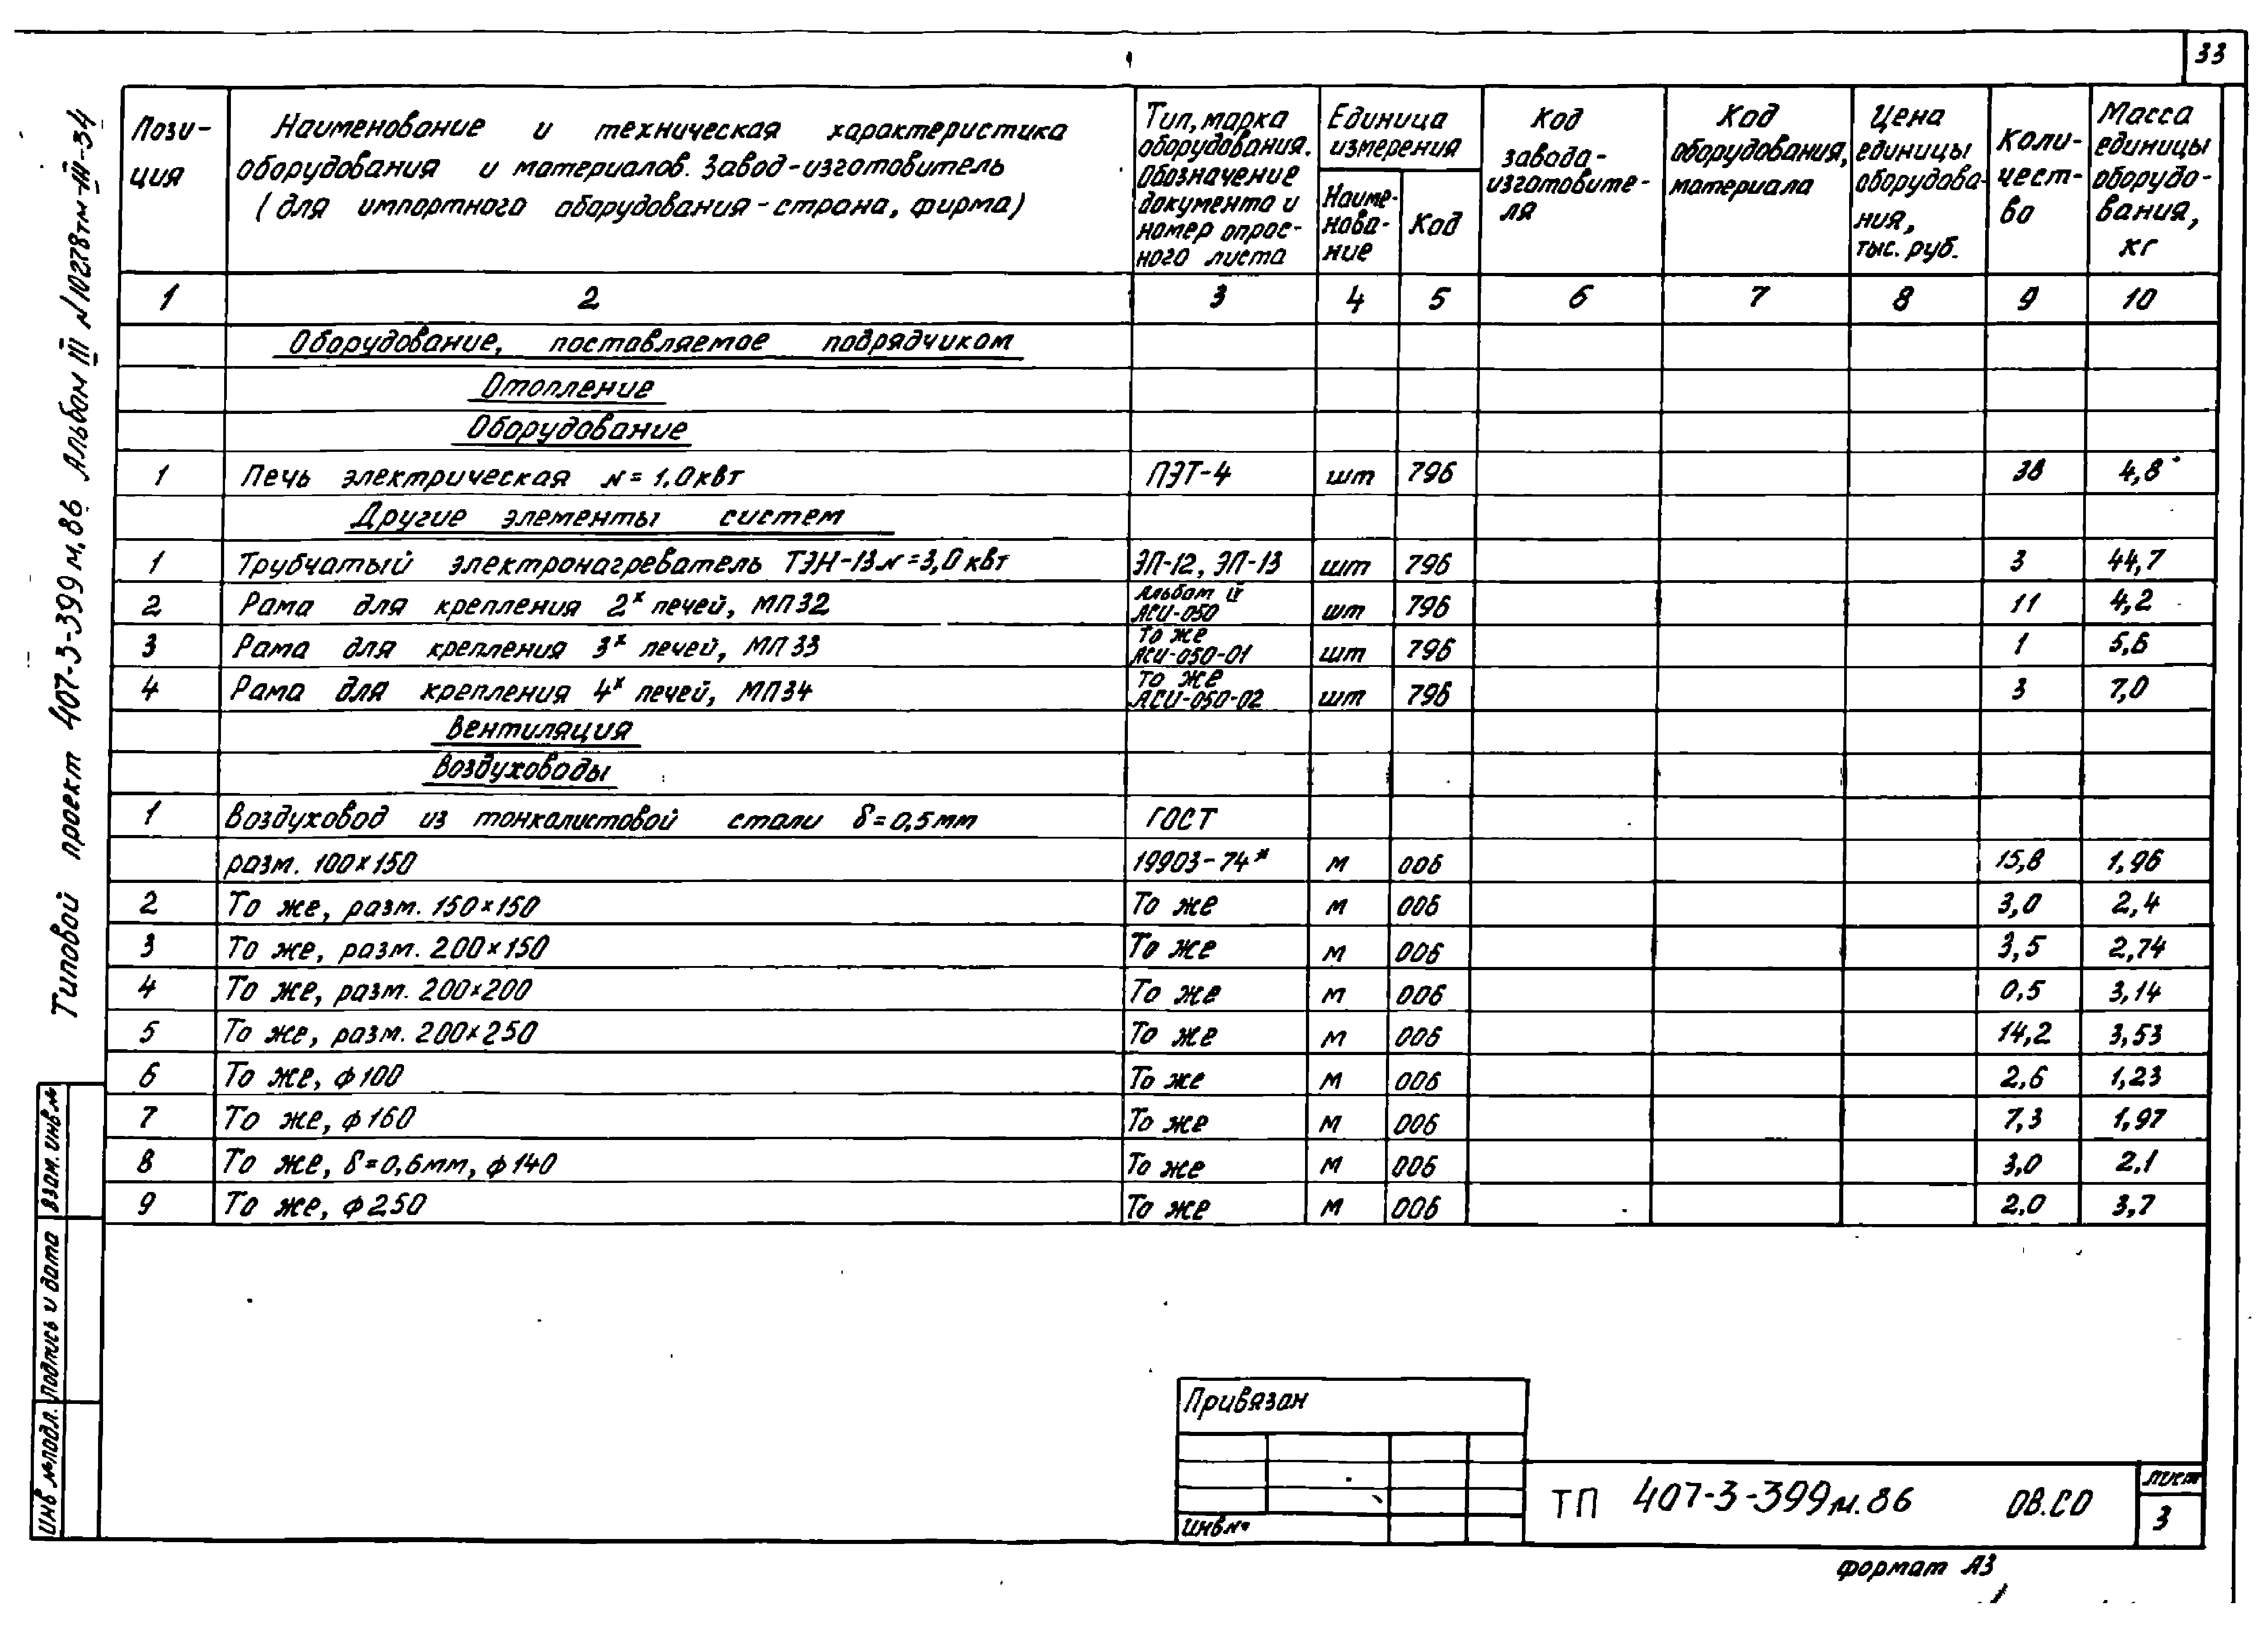 33
Типовой проект 407-3-399м.86 Альбом III N10278тм-III-34
Пози-
ция
Наименование и техническая характеристика
оборудования и материалов. Завод-изготовитель
(для импортного оборудования-страна, фирма)
Тип, марка
оборудования.
Обозначение
документа и
номер опрос-
ного листа
Единица
измерения
Наиме-
нова-
ние
Код
Код
завода-
изготовите-
ля
Код
оборудования,
материала
Цена
единицы
оборудова-
ния,
тыс. руб.
Коли-
чест-
во
Масса
единицы
оборудо-
вания,
кг
1 2 3 4 5 6 7 8 9 10
Оборудование, поставляемое подрядчиком
Отопление
Оборудование
1 Печь электрическая N=1,0квт ПЭТ-4 шт 796 38 4,8
Другие элементы систем
1 Трубчатый электронагреватель ТЭН-13 N=3,0квт ЭП-12, ЭП-13 шт 796 3 44,7
2 Рама для крепления 2х печей, МП32 Альбом IV АСИ-050 шт 796 11 4,2
3 Рама для крепления 3х печей, МП33 То же АСИ-050-01 шт 796 1 5,6
4 Рама для крепления 4х печей, МП34 То же АСИ-050-02 шт 796 3 7,0
Вентиляция
Воздуховоды
1 Воздуховод из тонколистовой стали δ=0,5мм ГОСТ
разм. 100×150 19903-74* м 006 15,8 1,96
2 То же, разм. 150×150 То же м 006 3,0 2,4
3 То же, разм. 200×150 То же м 006 3,5 2,74
4 То же, разм. 200×200 То же м 006 0,5 3,14
5 То же, разм. 200×250 То же м 006 14,2 3,53
6 То же, ф100 То же м 006 2,6 1,23
7 То же, ф160 То же м 006 7,3 1,97
8 То же, δ=0,6мм, ф140 То же м 006 3,0 2,1
9 То же, ф250 То же м 006 2,0 3,7
Взам. инв.№
Подпись и дата
Инв №подл.
Привязан
Инв№
ТП 407-3-399м.86 ОВ.СО
лист
3
формат А3